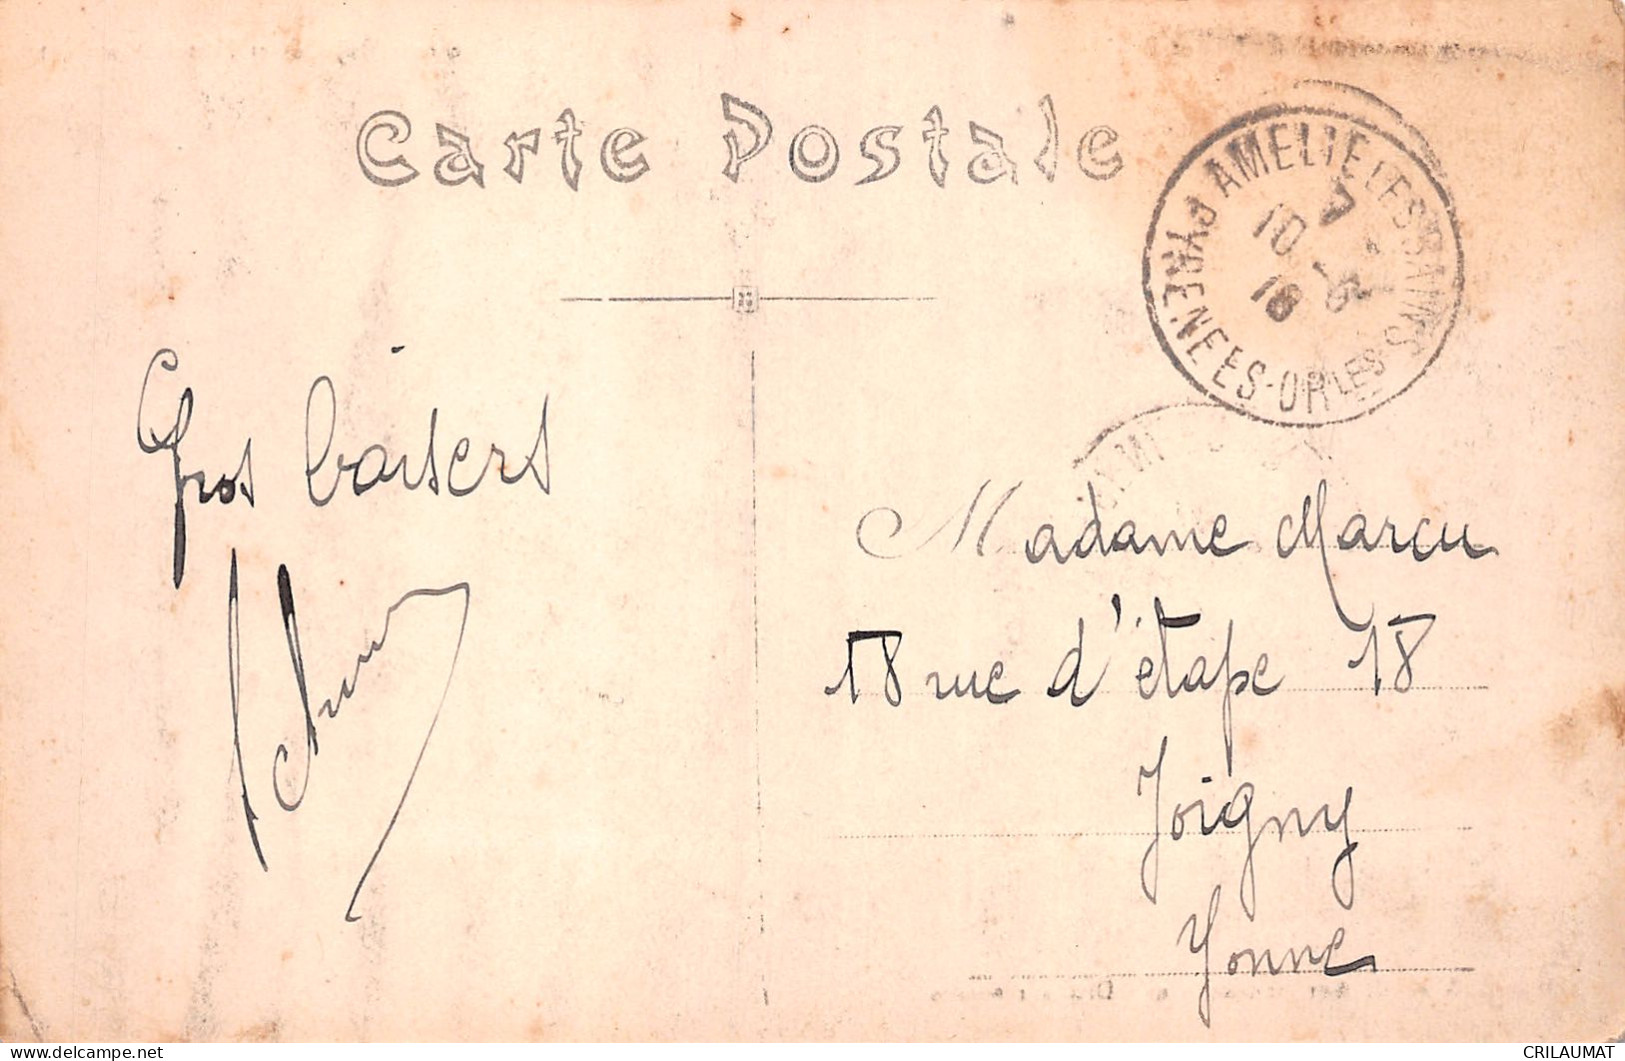 Carte Postale
AMELIE LES BAINS
10 -5
18
PYRENEES-ORLES
Gros baisers
Madame Marcu
18 rue d'étape 18
Joigny
Yonne
CRILAUMAT